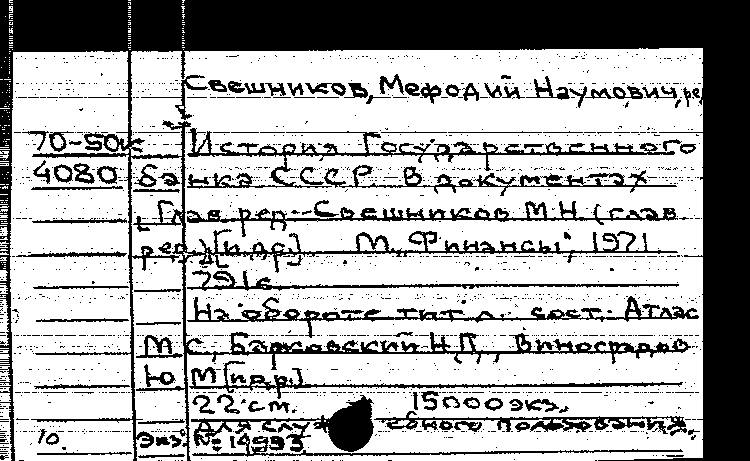 Свешников, Мефодий Наумович, ре
70-50к История Государственного
4080 банка СССР в документах
[Глав. ред.-Свешников М.Н. (глав.
ред.) [и др.] М., „Финансы", 1971.
791с.
На обороте тит. л. сост.: Атлас
М.С., Барковский Н.Д., Виноградов
Ю М [и др.]
22 см. 15000 экз.
Для служебного пользования.
10. Экз. № 14993